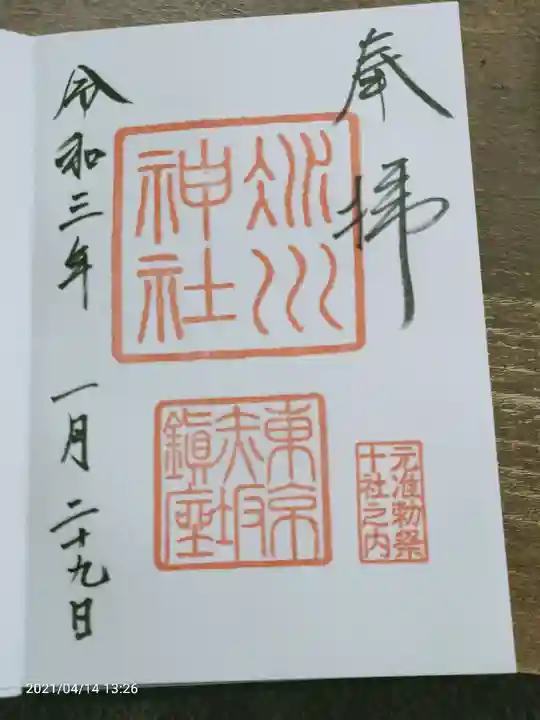 奉拝
氷川
神社
東京
赤坂
鎮座
元准勅祭
十社之内
令和三年 一月 二十九日
2021/04/14 13:26